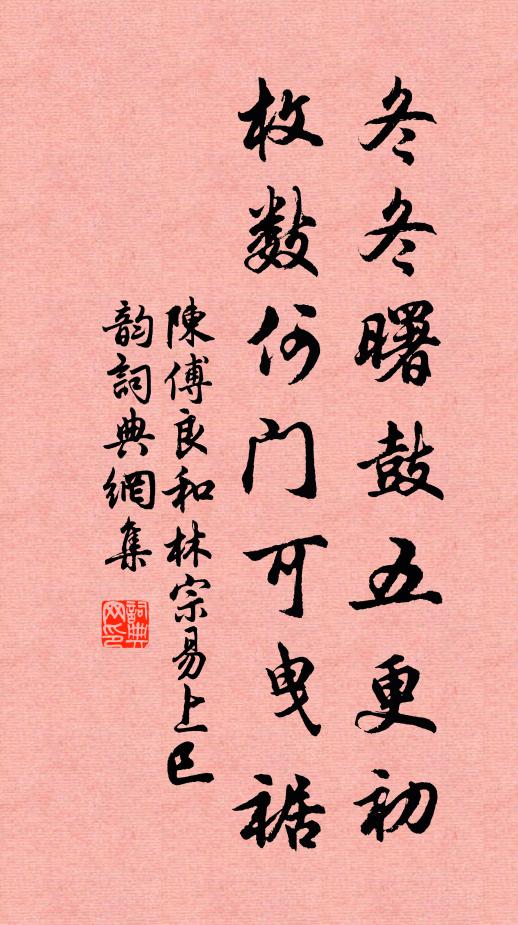 冬冬曙鼓五更初
枚数何门可曳裾
陳傅良和林宗易上巳
韵詞典網集
詞典網印